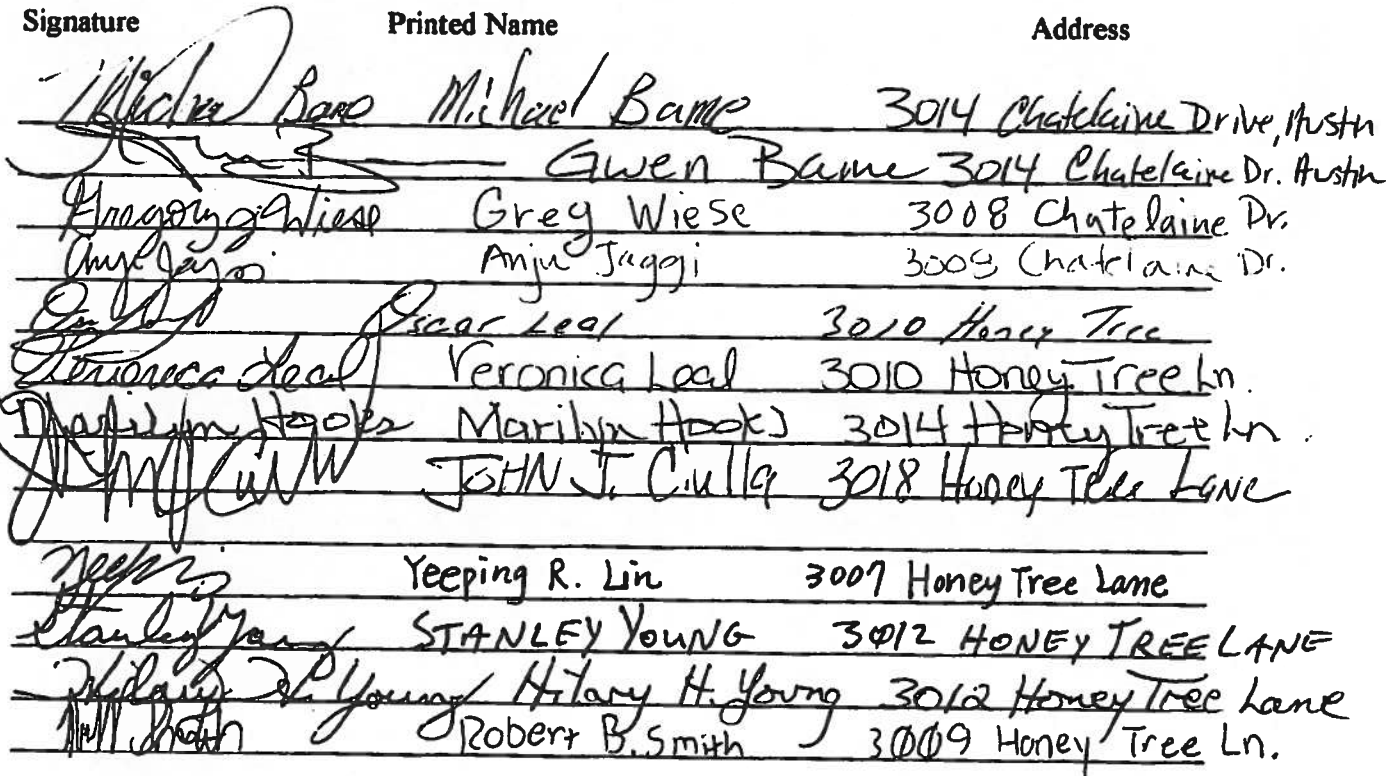 Signature Printed Name Address
Michael Bame Michael Bame 3014 Chatelaine Drive, Austin
Gwen Bame 3014 Chatelaine Dr. Austin
Gregory J Wiese Greg Wiese 3008 Chatelaine Dr.
Anju Jaggi 3008 Chatelaine Dr.
Oscar Leal 3010 Honey Tree
Veronica Leal Veronica Leal 3010 Honey Tree Ln.
Marilyn Hooks Marilyn Hooks 3014 Honey Tree Ln.
JOHN J. Culla 3018 Honey Tree LANE
Yeeping R. Lin 3007 Honey Tree Lane
Stanley Young STANLEY YOUNG 3012 HONEY TREE LANE
Hilary H. Young Hilary H. Young 3012 Honey Tree Lane
Robert B. Smith 3009 Honey Tree Ln.